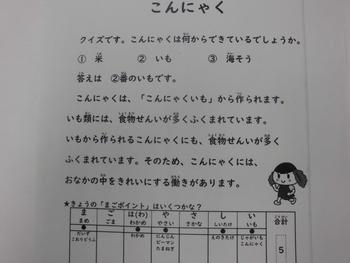 こんにゃく
クイズです。こんにゃくは何からできているでしょうか。
① 米　② いも　③ 海そう
答えは ②番のいもです。
こんにゃくは、「こんにゃくいも」から作られます。
いも類には、食物せんいが多くふくまれています。
いもから作られるこんにゃくにも、食物せんいが多く
ふくまれています。そのため、こんにゃくには、
おなかの中をきれいにする働きがあります。
★きょうの「まごポイント」はいくつかな？
ま ご は(わ) や さ し い 合計
まめ ごま わかめ やさい さかな しいたけ いも
● ● ● ● ●
だいず わかめ にんじん えのきたけ じゃがいも 5
こおりどうふ ピーマン こんにゃく
たまねぎ